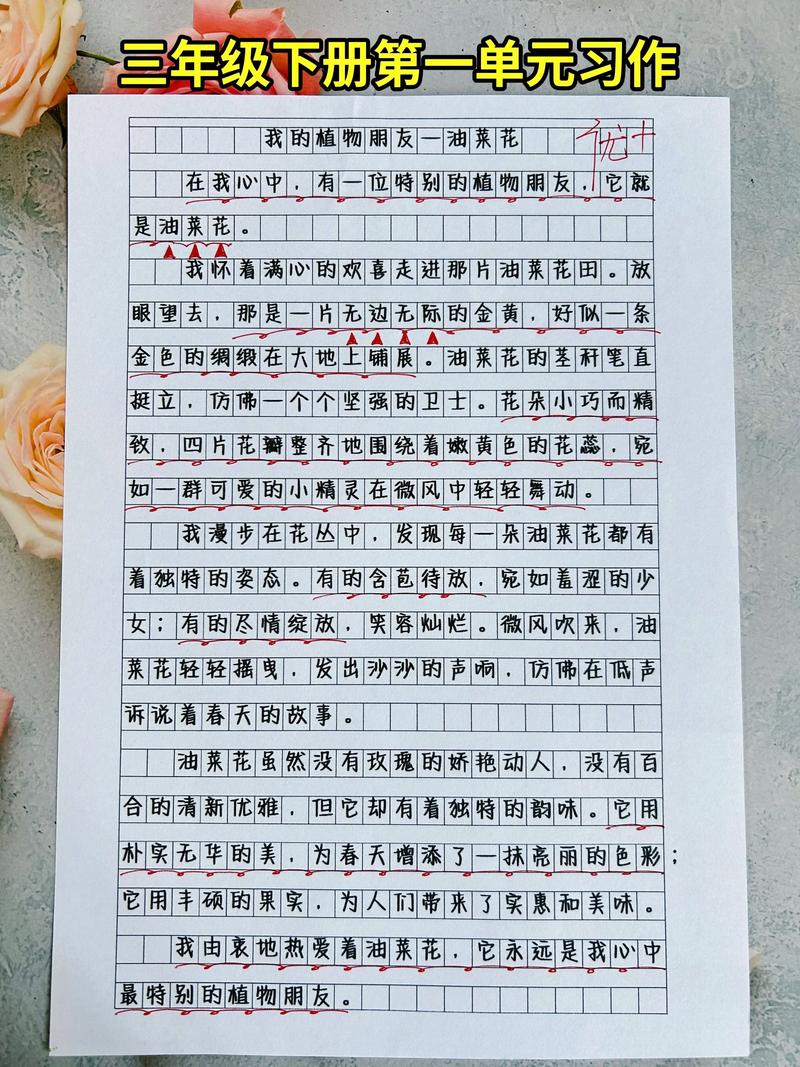 三年级下册第一单元习作
我的植物朋友—油菜花
优+
在我心中，有一位特别的植物朋友，它就
是油菜花。
我怀着满心的欢喜走进那片油菜花田。放
眼望去，那是一片无边无际的金黄，好似一条
金色的绸缎在大地上铺展。油菜花的茎秆笔直
挺立，仿佛一个个坚强的卫士。花朵小巧而精
致，四片花瓣整齐地围绕着嫩黄色的花蕊，宛
如一群可爱的小精灵在微风中轻轻舞动。
我漫步在花丛中，发现每一朵油菜花都有
着独特的姿态。有的含苞待放，宛如羞涩的少
女；有的尽情绽放，笑容灿烂。微风吹来，油
菜花轻轻摇曳，发出沙沙的声响，仿佛在低声
诉说着春天的故事。
油菜花虽然没有玫瑰的娇艳动人，没有百
合的清新优雅，但它却有着独特的韵味。它用
朴实无华的美，为春天增添了一抹亮丽的色彩；
它用丰硕的果实，为人们带来了实惠和美味。
我由衷地热爱着油菜花，它永远是我心中
最特别的植物朋友。